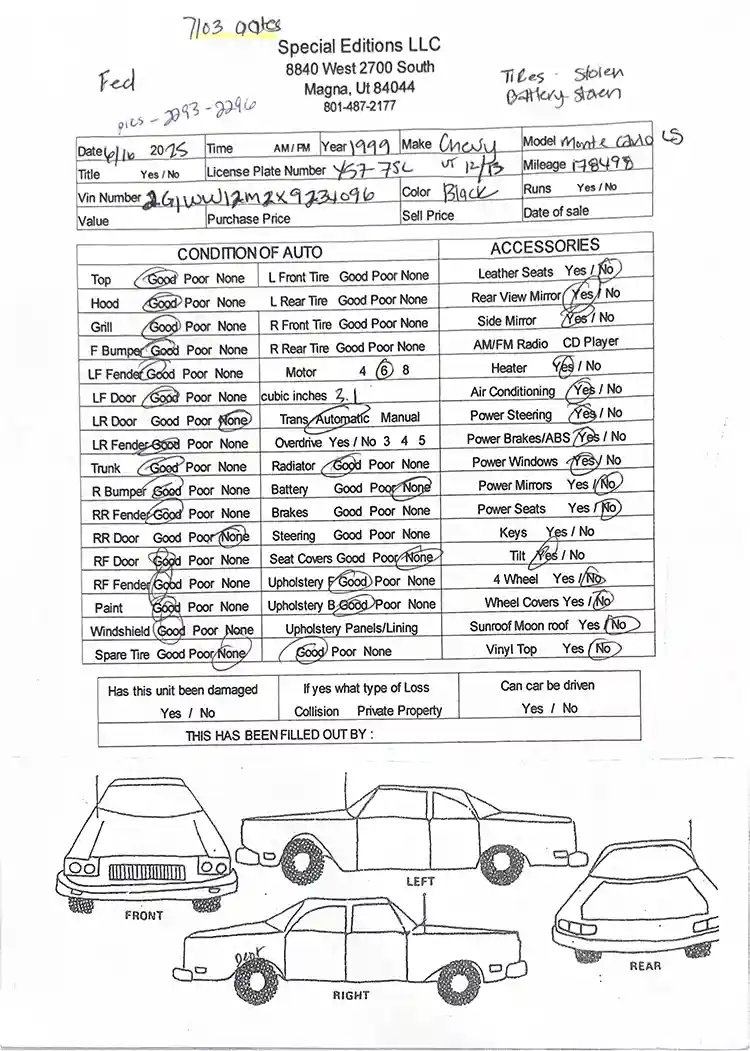 7103 oates
Special Editions LLC
Fed
8840 West 2700 South
Magna, Ut 84044
801-487-2177
Tires - Stolen
Battery - Stolen
pics - 2293 - 2296
Date 6/16 2025 Time AM / PM Year 1999 Make Chevy Model Monte Carlo LS
Title Yes / No License Plate Number Y57-7SL UT 12/13 Mileage 178498
Vin Number 2G1WW12M2X9234096 Color Black Runs Yes / No
Value Purchase Price Sell Price Date of sale
CONDITION OF AUTO ACCESSORIES
Top Good Poor None L Front Tire Good Poor None Leather Seats Yes / No
Hood Good Poor None L Rear Tire Good Poor None Rear View Mirror Yes / No
Grill Good Poor None R Front Tire Good Poor None Side Mirror Yes / No
F Bumper Good Poor None R Rear Tire Good Poor None AM/FM Radio CD Player
LF Fender Good Poor None Motor 4 6 8 Heater Yes / No
LF Door Good Poor None cubic inches 3.1 Air Conditioning Yes / No
LR Door Good Poor None Trans Automatic Manual Power Steering Yes / No
LR Fender Good Poor None Overdrive Yes / No 3 4 5 Power Brakes/ABS Yes / No
Trunk Good Poor None Radiator Good Poor None Power Windows Yes / No
R Bumper Good Poor None Battery Good Poor None Power Mirrors Yes / No
RR Fender Good Poor None Brakes Good Poor None Power Seats Yes / No
RR Door Good Poor None Steering Good Poor None Keys Yes / No
RF Door Good Poor None Seat Covers Good Poor None Tilt Yes / No
RF Fender Good Poor None Upholstery F Good Poor None 4 Wheel Yes / No
Paint Good Poor None Upholstery B Good Poor None Wheel Covers Yes / No
Windshield Good Poor None Upholstery Panels/Lining Sunroof Moon roof Yes / No
Spare Tire Good Poor None Good Poor None Vinyl Top Yes / No
Has this unit been damaged If yes what type of Loss Can car be driven
Yes / No Collision Private Property Yes / No
THIS HAS BEEN FILLED OUT BY :
LEFT
FRONT
dent
REAR
RIGHT